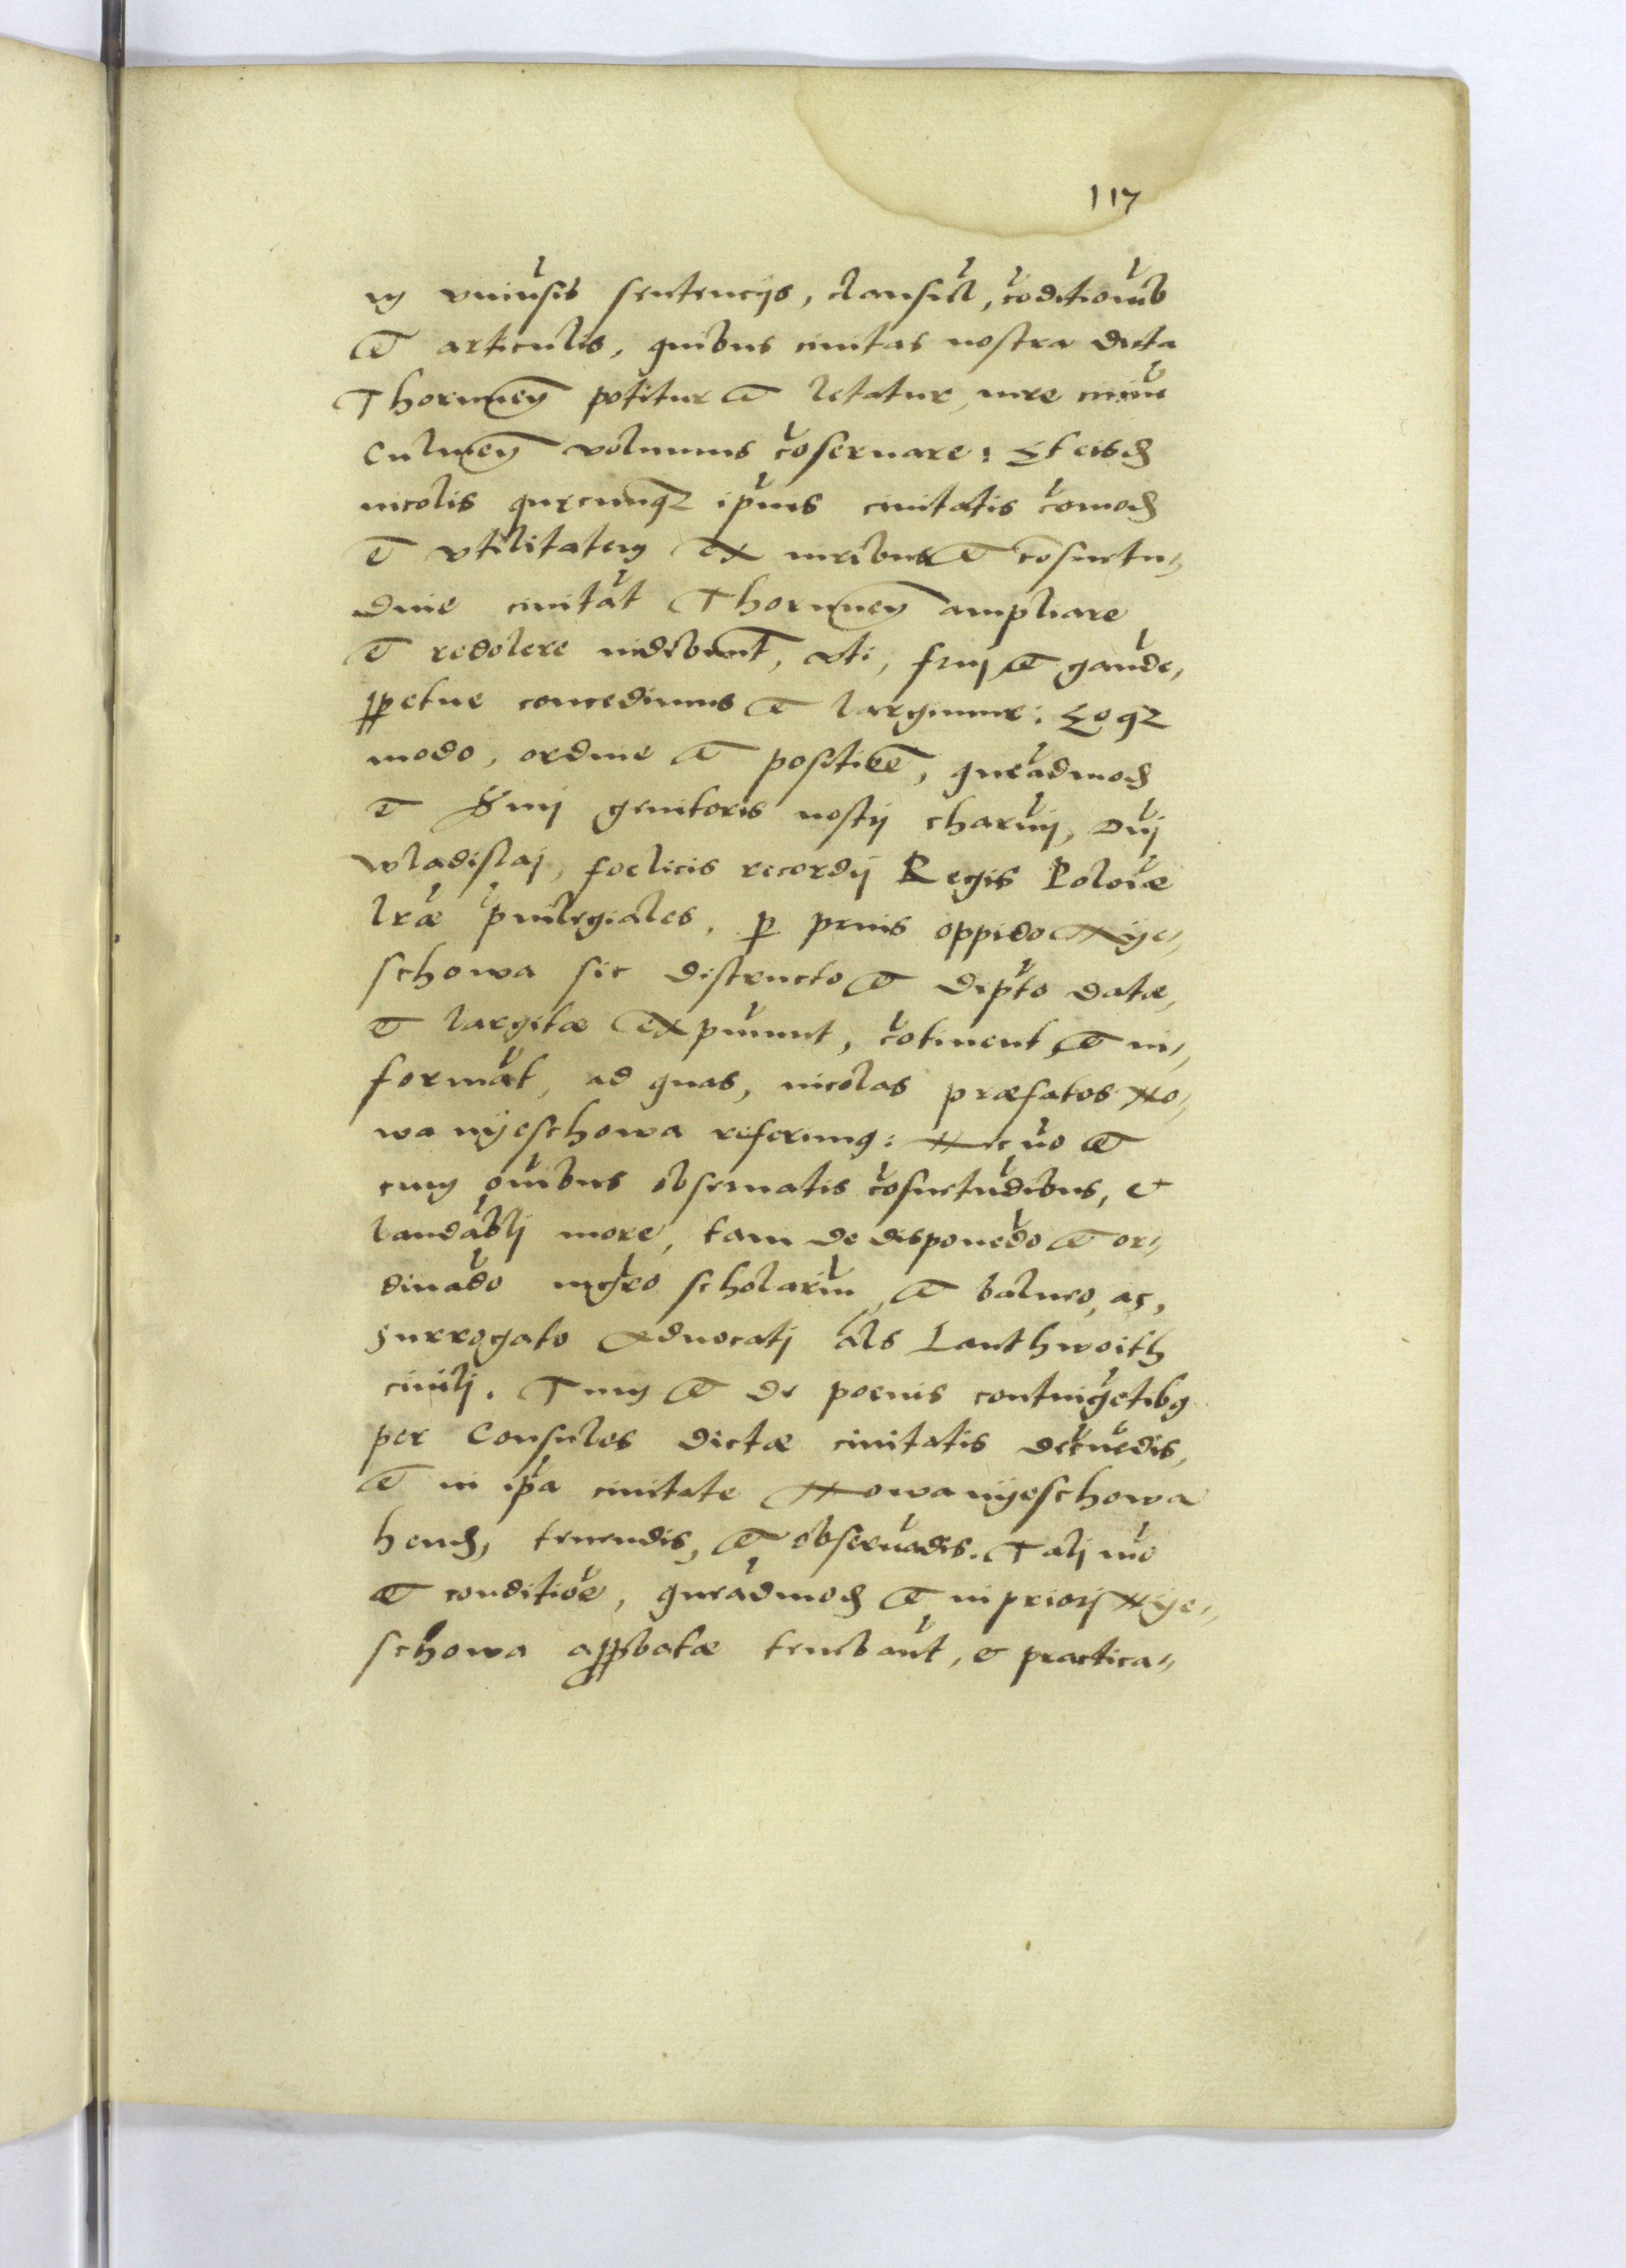 117
in vniusis sentencijs, clausul, coditioib
et articulis, quibus ciuitas nostra dicta
Thorunien potitur et letatur, iure
Culmen volumus coseruare: Et eisd
incolis quecunqz ipius ciuitatis comod
et vtilitatem ex iuribus et cosuetu„
dine ciuitat Thorunien ampliare
et redolere videbunt, vti, frui et gaude,
ppetue concedimus et largimur: Eo qz
modo, ordine et positioe, queadmod
et genitoris nostri charmi, Dni
wladislai, foelicis recordij Regis Polonæ
lræ priuilegiales, p prius oppido Nye„
schowa sic distructo et depto datæ,
et largitæ exprimunt, cotinent et in„
format, ad quas, incolas præfatos No„
wanyeschowa referimus: Nec no et
cum oibus obseruatis cosuetudibus, et
laudabli more, tam de disponedo et or„
dinado mgro scholarium, et balneo, ac,
surrogato aduocati als Lanthwoith
ciuili. Tum et de poenis contingetibus
per Consules dictæ ciuitatis decernedis,
et in ipa ciuitate Nowanyeschowa
hend, tenendis, et obseruadis. Tali mo
et conditioe, queadmod et in priori Nye„
schowa approbatæ tenebant, et practica„